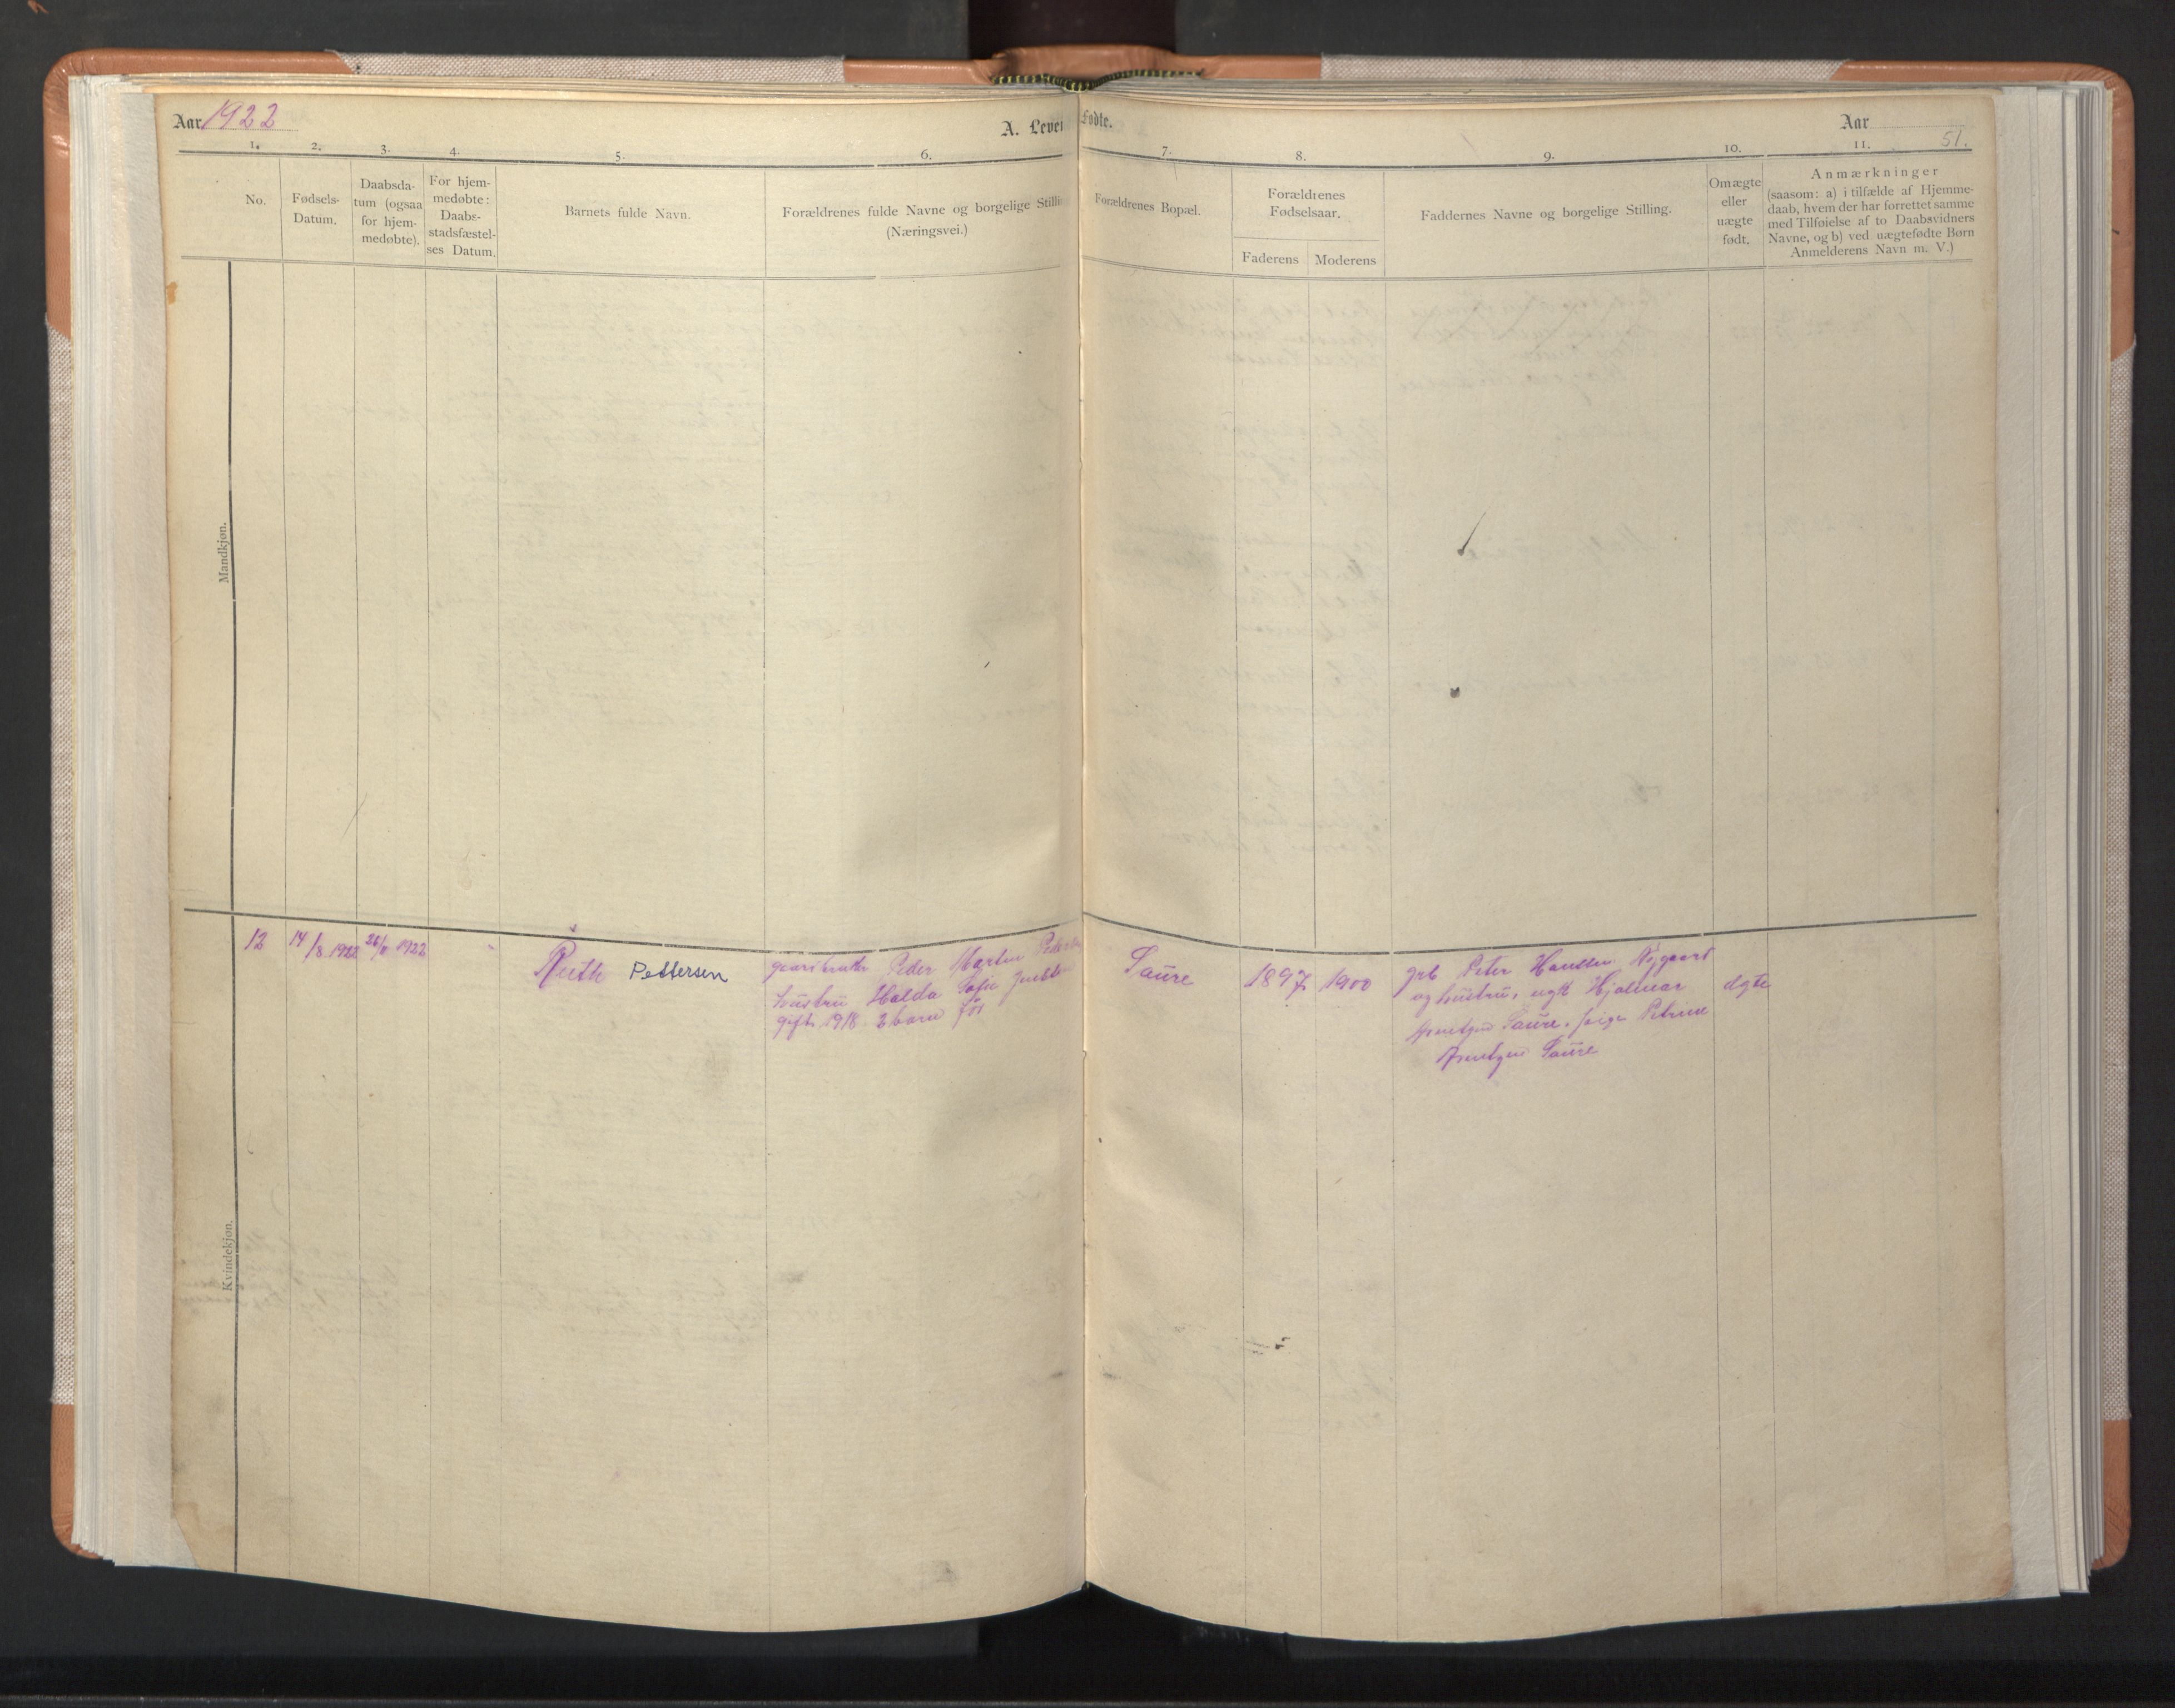 Aar 1922
A. Leve
Fødte.
Aar
51.
1. 2. 3. 4. 5. 6. 7. 8. 9. 10. 11.
No.
Fødsels-
Datum.
Daabsda-
tum (ogsaa
for hjem-
medøbte).
For hjem-
medøbte:
Daabs-
stadsfæstel-
ses Datum.
Barnets fulde Navn.
Forældrenes fulde Navne og borgelige Stilli
(Næringsvei.)
Forældrenes Bopæl.
Forældrenes
Fødselsaar.
Faderens
Moderens
Faddernes Navne og borgelige Stilling.
Omægte
eller
uægte
født.
Anmærkninger
(saasom: a) i tilfælde af Hjemme-
daab, hvem der har forrettet samme
med Tilføielse af to Daabsvidners
Navne, og b) ved uægtefødte Børn
Anmelderens Navn m. V.)
Mandkjøn.
Kvindekjøn.
12
14/8 1922
1922
Ruth Pettersen
Peder Morten
hustru Halda Sofie
gift 1918 2 barn før
Saure
1897
1900
Peter Hansen Nygaard
og hustru, ugk Hjalmar
Saure, pige Petrine
Saure
ægte